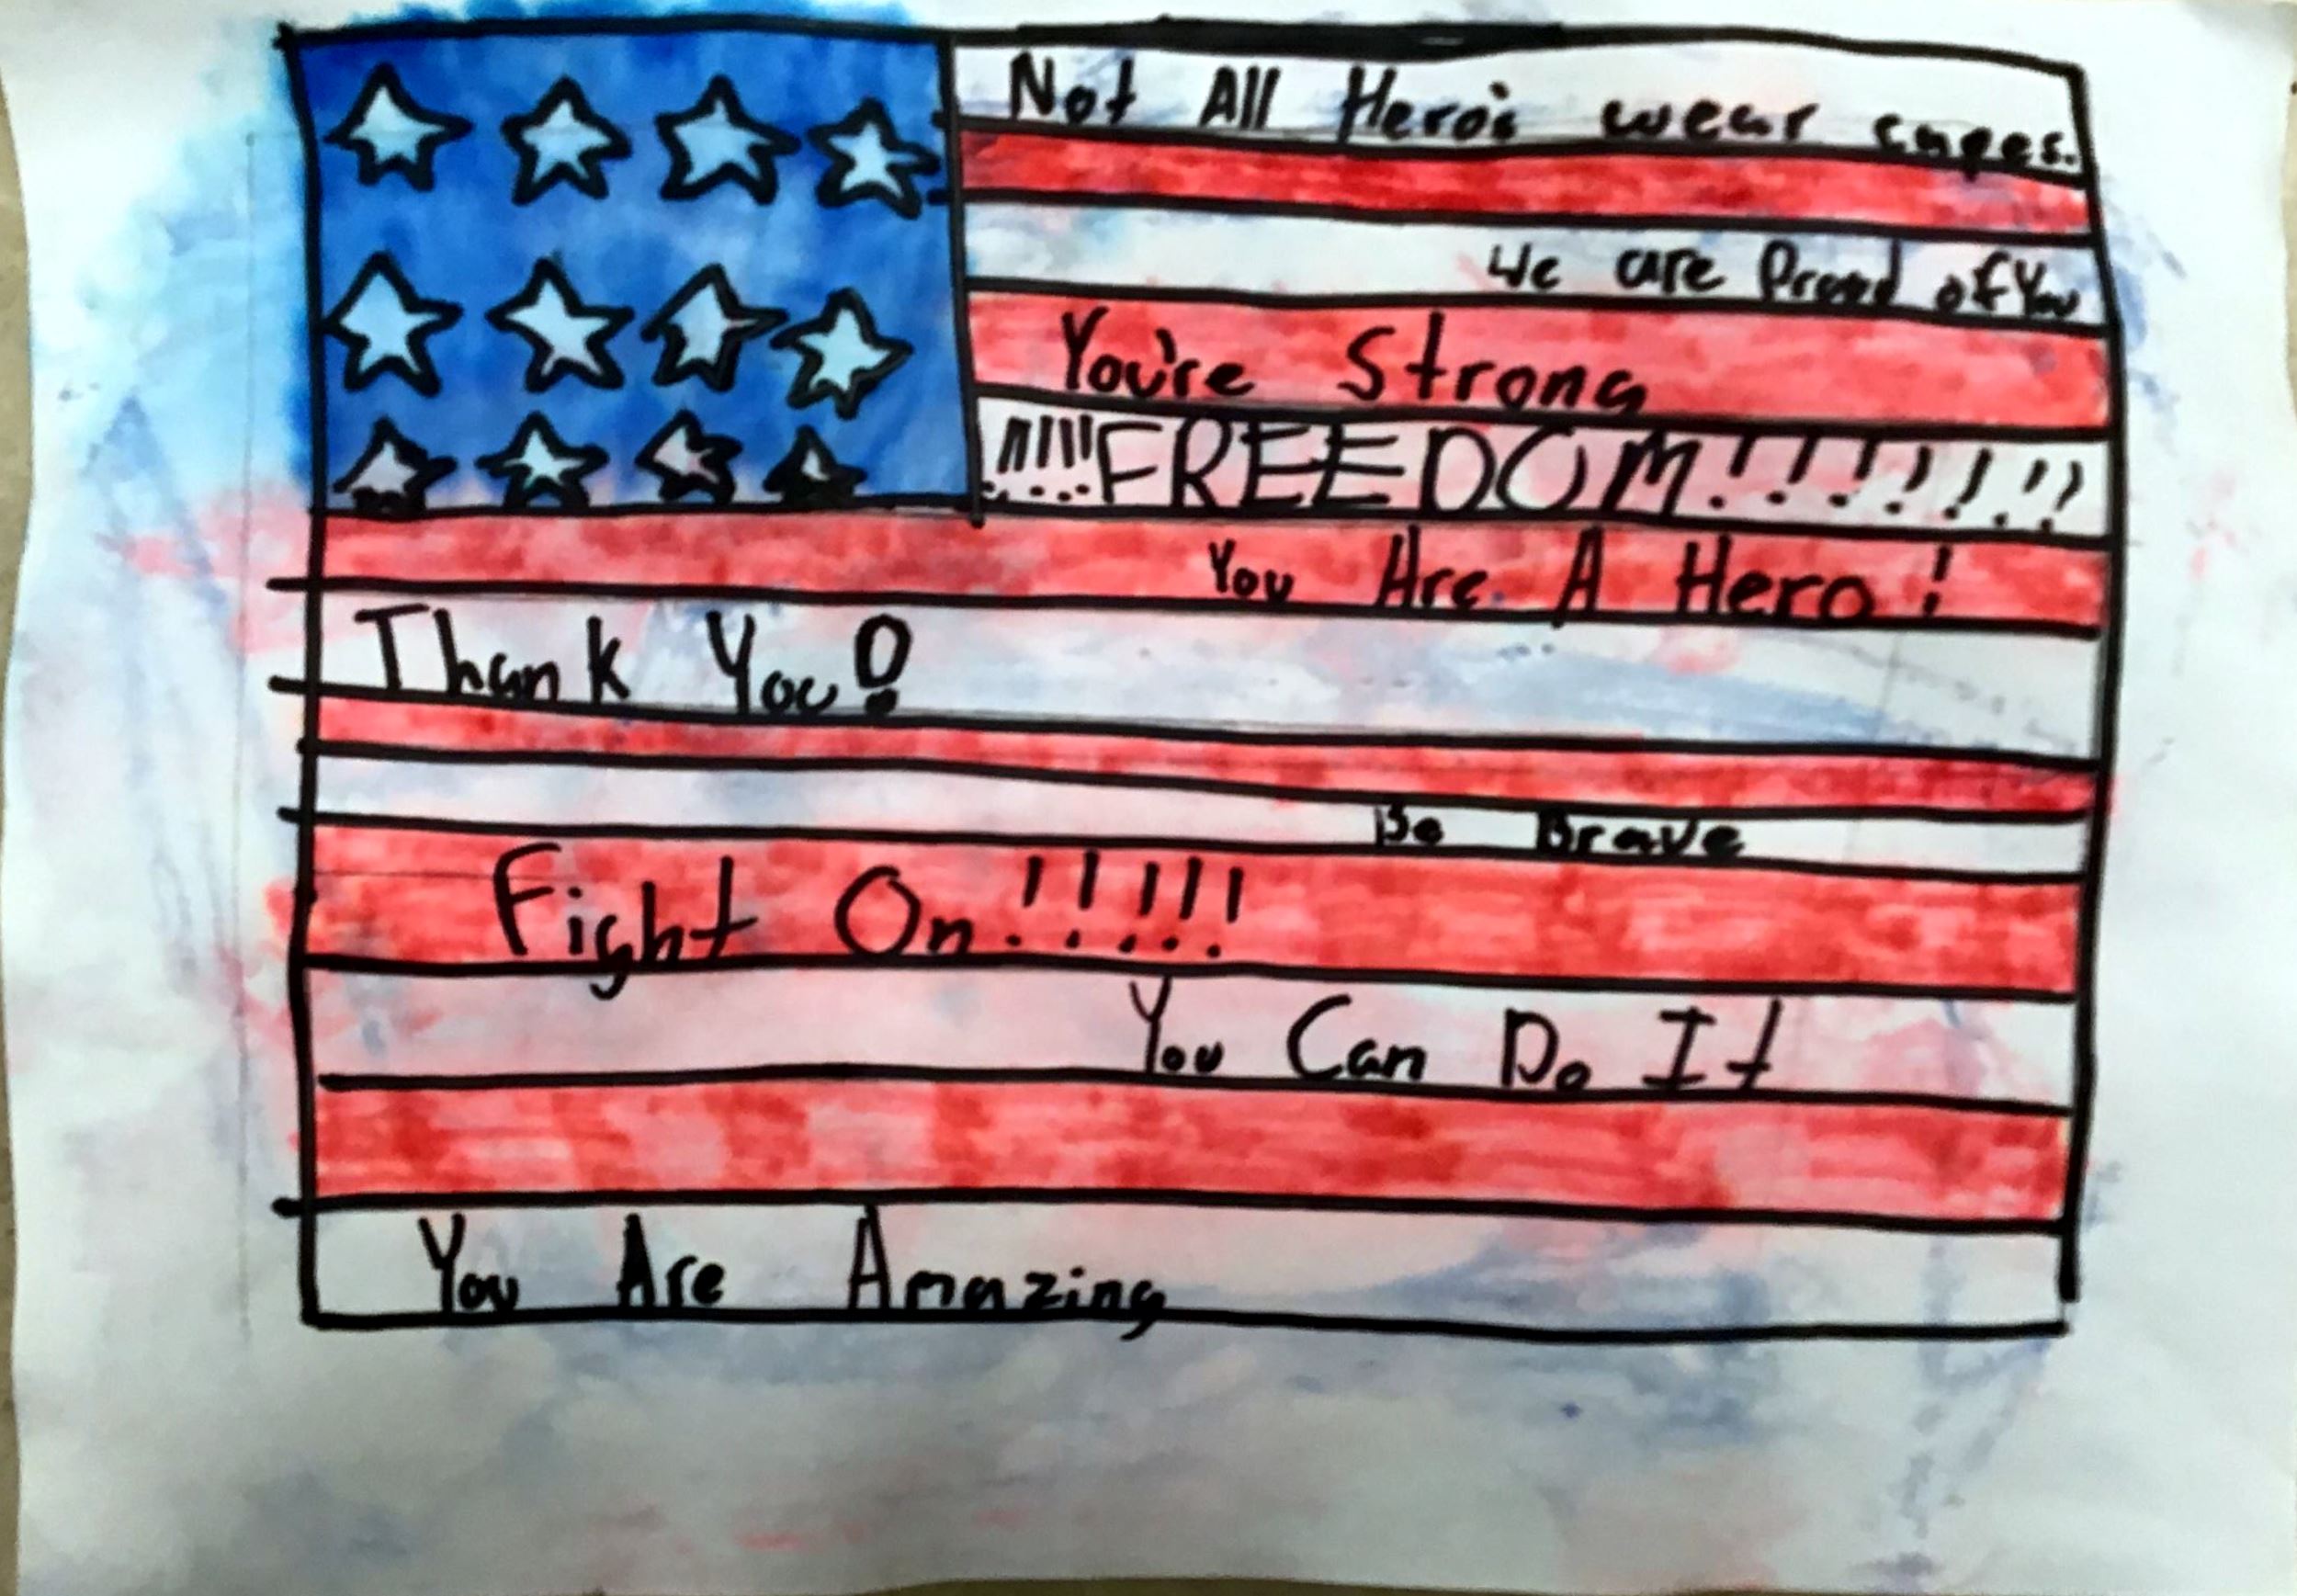 Not All Hero's wear capes.
We are Proud of You
You're Strong
!!!!!FREEDOM!!!!!!!!
You Are A Hero!
Thank You!
Be Brave
Fight On!!!!!
You Can Do It
You Are Amazing